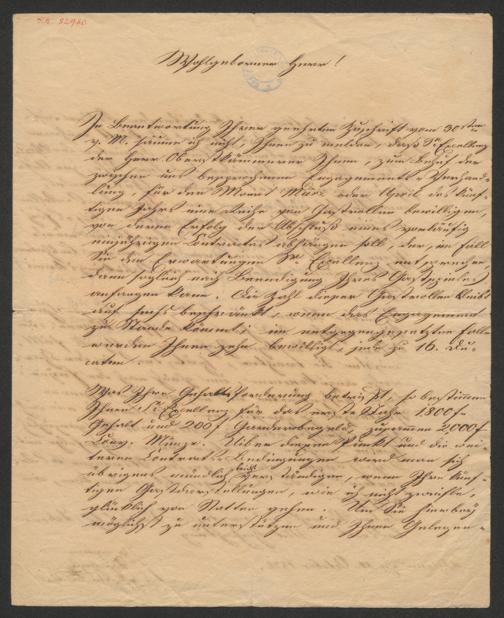 I.N. 82980
Wohlgeborner Herr!
In Beantwortung Ihrer geehrten Zuschrift vom 30ten
v. M. säume ich nicht, Ihnen zu melden, daß Sr Excellenz
der Herr Oberstkämmerer Ihnen, zum Behuf der
zwischen uns begonnenen Engagements-Verhand-
lung, für den Monat März oder April des künf-
tigen Jahrs eine Reihe von Gastrollen bewilligen,
von deren Erfolg der Abschluß eines vorläufig
einjährigen Contractes abhängen soll, der, im Fall
Sie den Erwartungen Sr Excellenz entsprechen
dann sogleich nach Beendigung Ihres Gastspieles
anfangen kann. Die Zahl dieser Gastrollen bleibt
auf sechs beschränkt, wenn das Engagement
zu Stande kömmt; im entgegengesetzten Falle
werden Ihnen zehn bewilligt, jede zu 16. Du-
caten.
Was Ihre Gehaltsforderung betrifft, so bestimmen
Ihnen Sr Excellenz für das erste Jahr 1800f
Gehalt und 200f Garderobegeld, zusammen 2,000f
Conv. Münze. Ueber diesen Punkt und die wei-
teren Contracts-Bedingungen wird man sich
übrigens mündlich leicht verständigen, wenn Ihre künf-
tigen Gastdarstellungen, wie ich nicht zweifle,
glücklich von Statten gehen. Um Sie hierbey
möglichst zu unterstützen und Ihnen Gelegen-